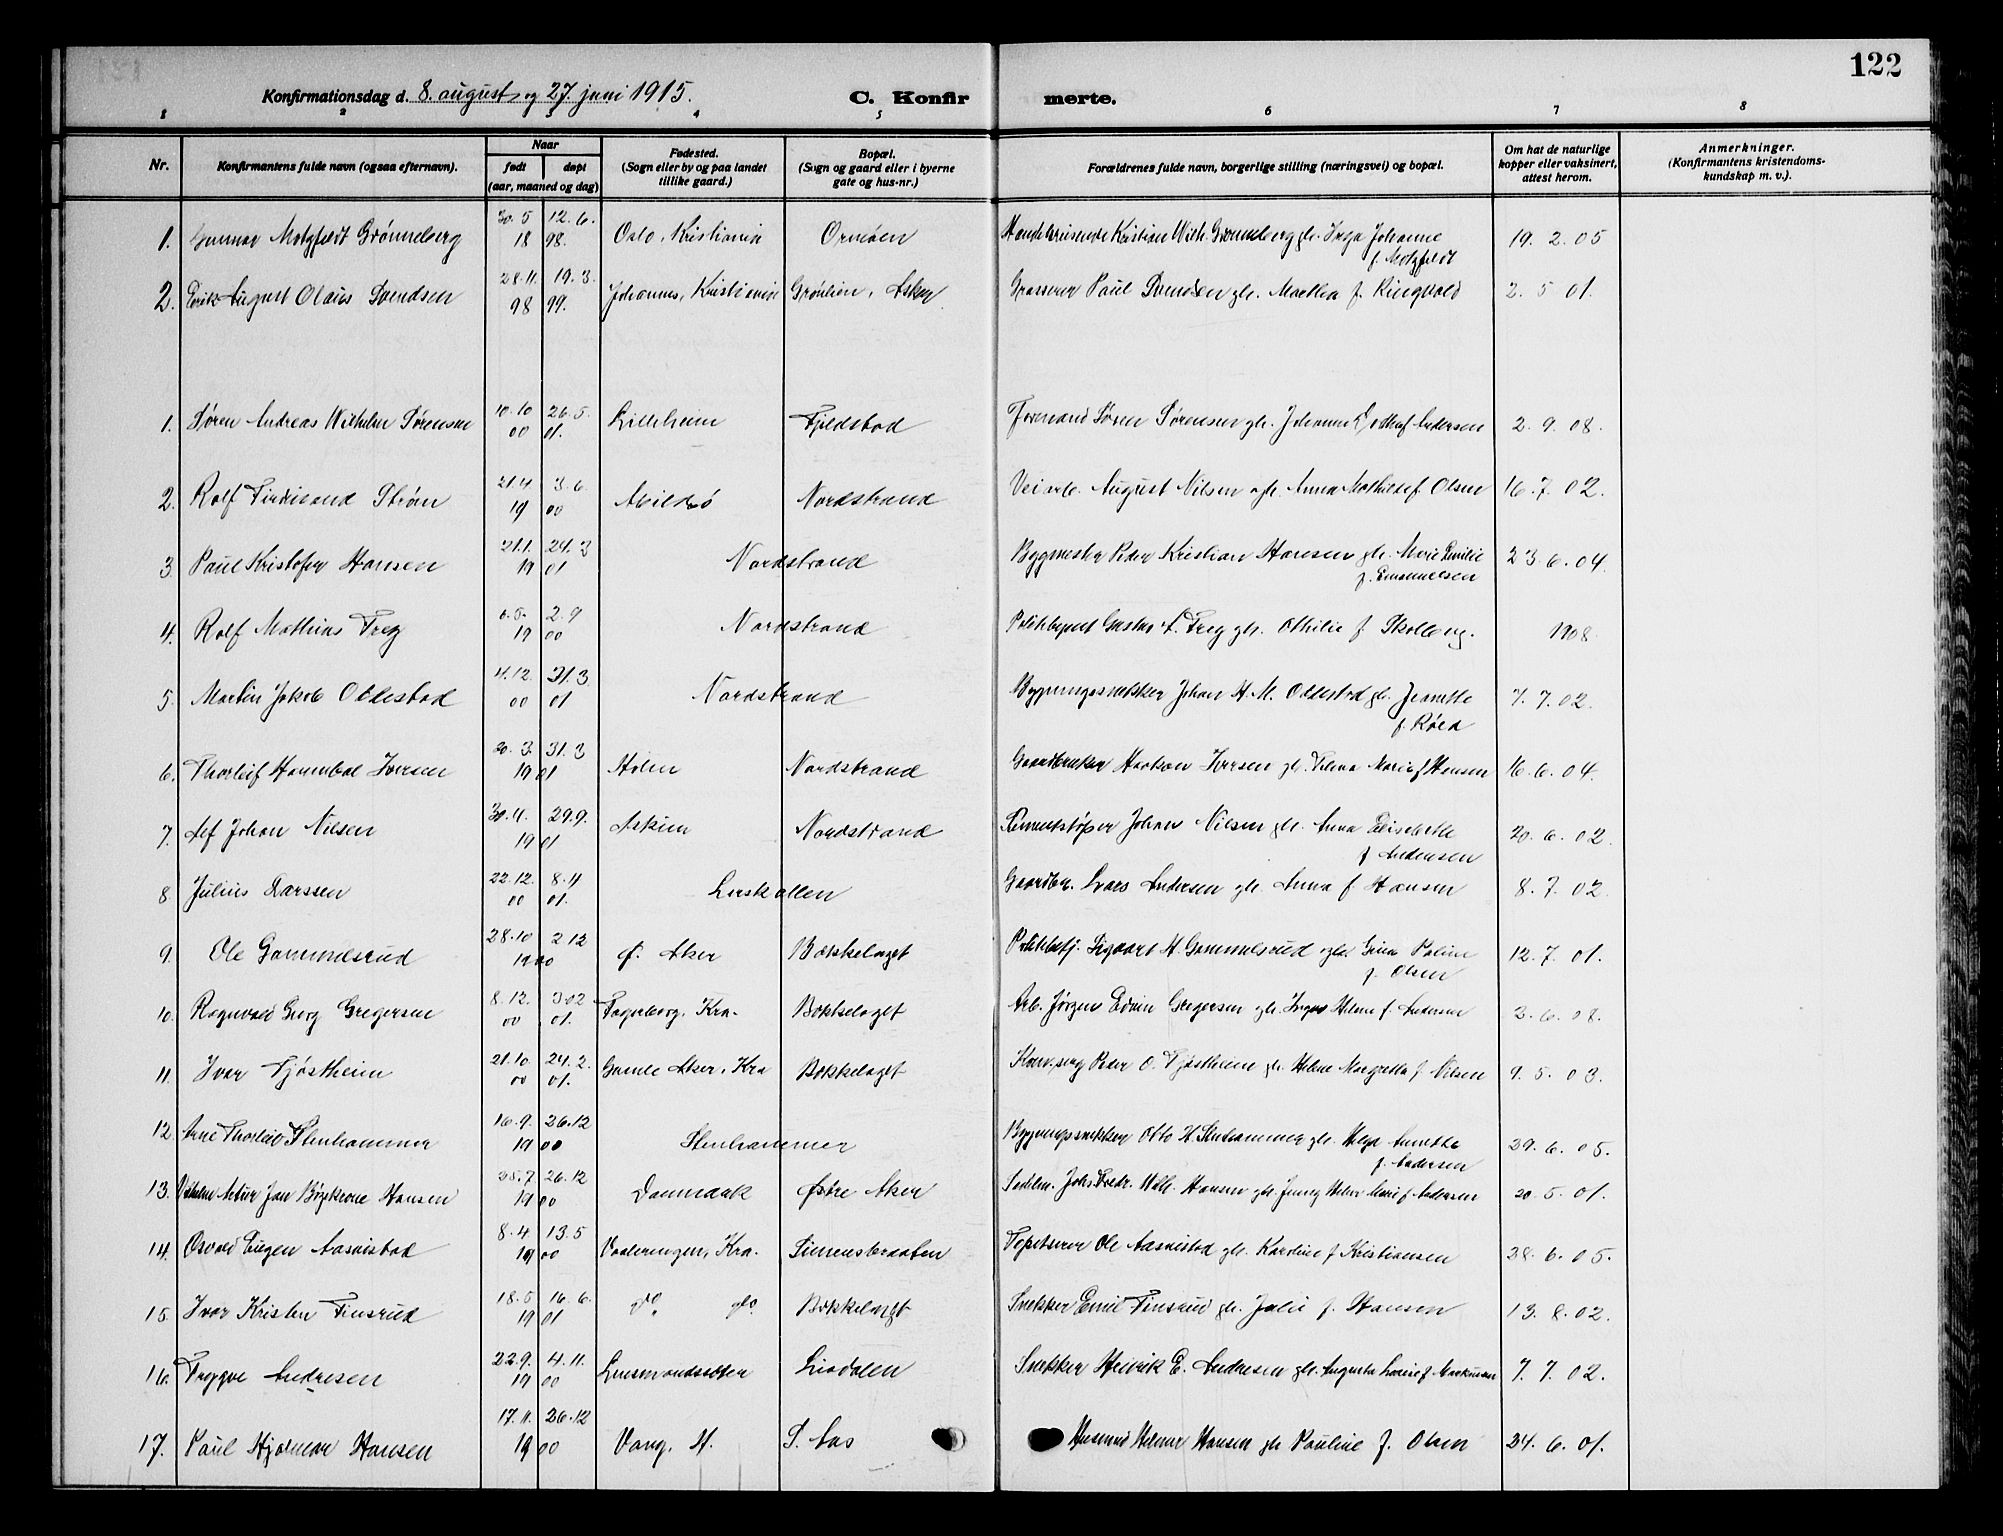 122
Konfirmationsdag d. 8. august og 27. juni 1915.
C. Konfir merte.
1 2 3 4 5 6 7 8
Nr. Konfirmantens fulde navn (ogsaa efternavn). Naar født døpt (aar, maaned og dag) Fødested. (Sogn eller by og paa landet tillike gaard.) Bopæl. (Sogn og gaard eller i byerne gate og hus-nr.) Forældrenes fulde navn, borgerlige stilling (næringsvei) og bopæl. Om hat de naturlige kopper eller vaksinert, attest herom. Anmerkninger. (Konfirmantens kristendoms- kundskap m. v.).
1. Gunnar Motzfeldt Grønneberg 30.5 18 12.6. 98. Oslo, Kristiania Ormøen Handelsreisende Kristian Wilh. Grønneberg gh. Inga Johanne f. Motzfeldt 19. 2. 05
2. Erik August Olaus Svendsen 28.11. 98 19.3. 99. Johannes, Kristiania Grønlien, Asker Grosserer Paul Svendsen gh. Marthea f. Ringvold 2. 5 01.
1. Søren Andreas Wilhelm Sørensen 10.10 00 26.5. 01. Lilleheim Fjeldstad Formand Søren Sørensen gh. Johanne f. Andersen 2. 9. 08.
2. Rolf Ferdinand Strøm 21.4 19 3.6. 00 Abildsø Nordstrand Veiarb. August Nilsen gh. Anna Mathilde f. Olsen 16. 7. 02.
3. Paul Kristofer Hansen 21.1. 19 24.3 01 Nordstrand Bygmester Peder Kristian Hansen gh. Marie Emilie f. Emanuelsen 23. 6. 04.
4. Rolf Mathias Freg 19 2.9 00 Nordstrand Politibetjent Gustav A. Freg gh. Othilie f. Skolberg. 1908.
5. Martin Jakob Oldestad 4.12. 00 31.3 01 Nordstrand Bygningssnekker Johan H. M. Oldestad gh. Jeanette f. Røed 7. 7. 02.
6. Thorleif Hannibal Iversen 20.3. 19 31.3 01 Holen Nordstrand Gaardbruker Haakon Iversen gh. Marie f. Hansen 16. 6. 04.
7. Alf Johan Nilsen 19 29.9. 01 Askim Nordstrand Sementstøper Johan Nilsen gh. Anna Elisabeth f. Andersen 20. 6. 02.
8. Julius Larssen 22.12. 00 8.4 01. Lerskallen Gaardbr. Lars Andersen gh. Anna f. Hansen 8. 7. 02
9. Ole Gammelsrud 28.10 19 2.12 00 Ø. Aker Bekkelaget Politibetj. Sigvart H. Gammelsrud gh. Gina Poline f. Olsen 12. 7. 01.
10. Ragnvald Georg Gregersen 8.12. 00 01. Fagerborg, Kra. Bekkelaget Arb. Jørgen Edvin Gregersen gh. Helene f. Andersen 2. 6. 08.
11. Ivar Tjøstheim 21.10. 00 24.2. 01. Gamle Aker, Kra Bekkelaget Peder O. Tjøstheim gh. Helene Margretha f. Nilsen 9. 5. 03.
12. Arne Thorleif Stenhammer 16.9. 19 26.12 00 Stenhammer Bygningssnekker Otto H. Stenhammer gh. Helga Annette f. Andersen 29. 6. 05.
13. Vilhelm Artur Jan Hansen 25.7 19 26.12 00 Danmark Østre Aker Sadlm. Johs. Fredr. Wilh. Hansen gh. Jenny Marie f. Andersen 20. 5. 01.
14. Osvald Eugen Aasnistad 8.4 19 13.5 00 Vaalerengen, Kra. Simensbraaten Tapetserer Ole Aasnistad gh. Karoline f. Kristiansen 28. 6. 05.
15. Ivar Kristen Finsrud 18.5 19 16.6. 01 do. do. Bekkelaget Snekker Emil Finsrud gh. Julie f. Hansen 13. 8. 02.
16. Trygve Andresen 22.9. 19 4.11. 00 Lensmandssæter Liadalen Snekker Henrik E. Andresen gh. Augusta Lovise f. Markussen 7. 7. 02.
17. Paul Hjalmar Hansen 17.11. 19 26.12 00 Vang, H. S. Aas Husmand Hilmar Hansen gh. Pauline f. Olsen 24. 6. 01.